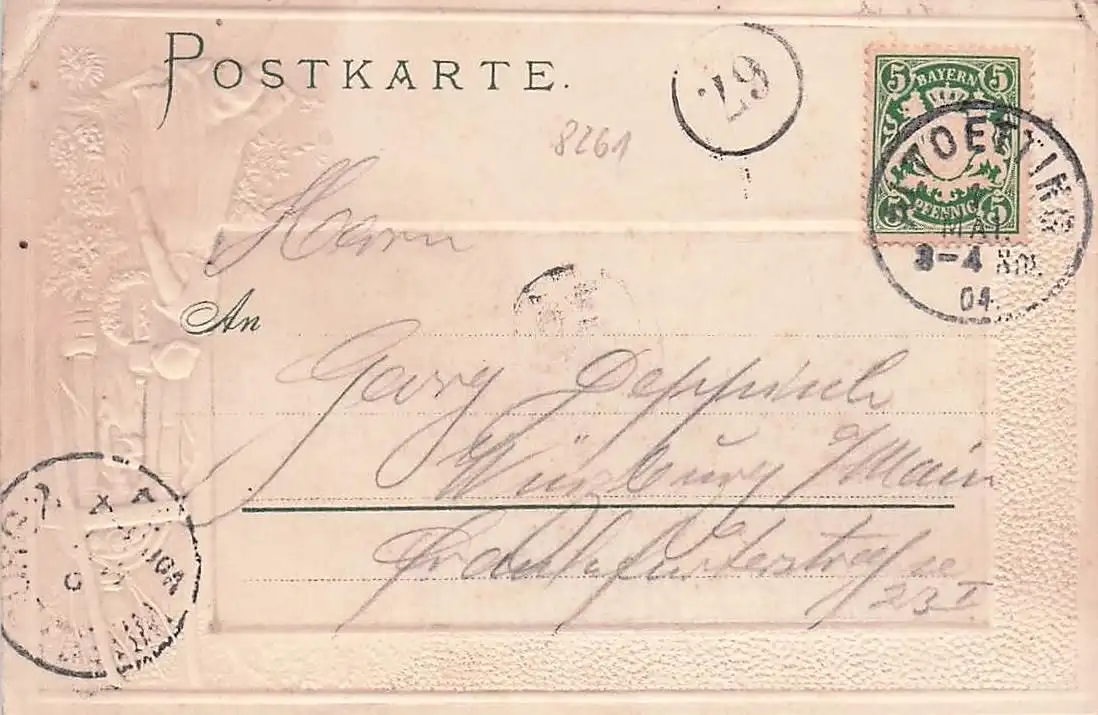 POSTKARTE.
67
8261
5 BAYERN 5
5 PFENNIG 5
TOETTING
MAI.
3-4 Nm.
04.
Herrn
An
Georg Deppisch
Würzburg a/Main
Frankfurterstraße
23 I